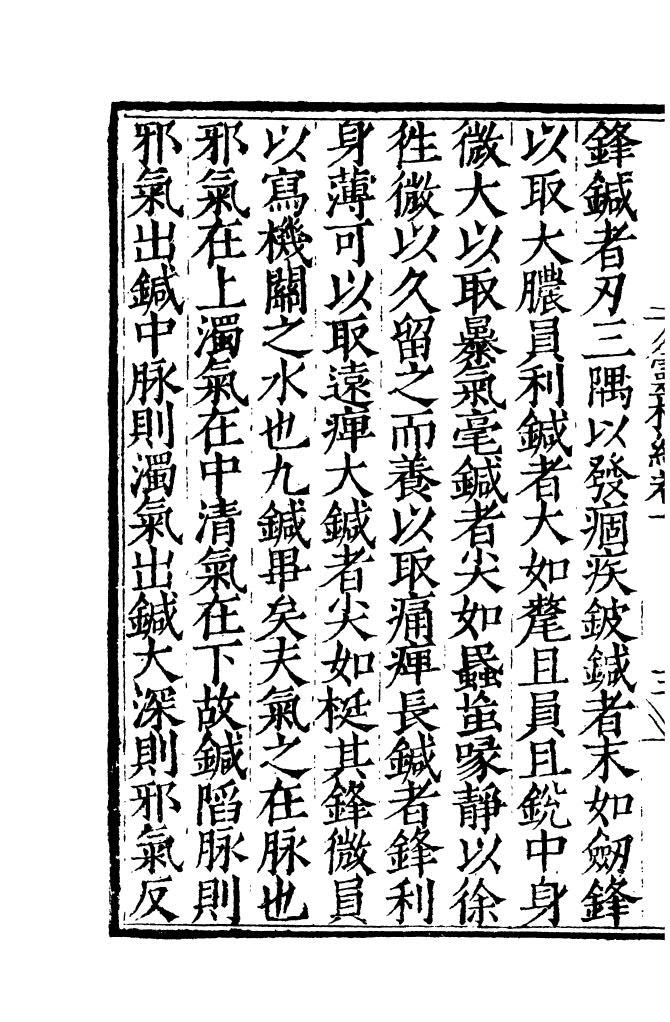 鋒鍼者刃三隅以發痼疾鈹鍼者末如劒鋒
以取大膿員利鍼者大如氂且員且銳中身
微大以取暴氣毫鍼者尖如蟁虻喙靜以徐
徃微以久留之而養以取痛痺長鍼者鋒利
身薄可以取遠痺大鍼者尖如梃其鋒微員
以寫機關之水也九鍼畢矣夫氣之在脉也
邪氣在上濁氣在中清氣在下故鍼陷脉則
邪氣出鍼中脉則濁氣出鍼大深則邪氣反